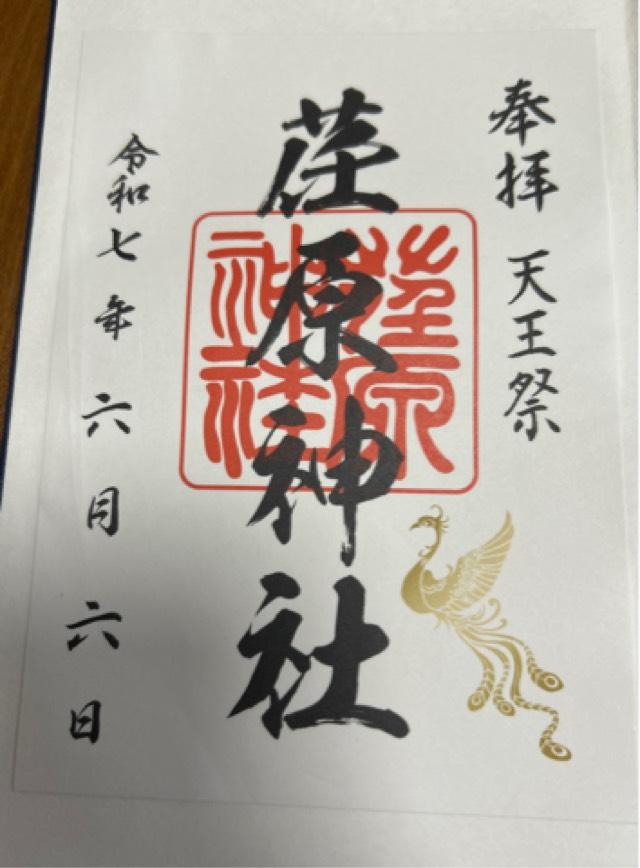 奉拝 天王祭
荏原神社
荏原
神社
令和七年六月六日